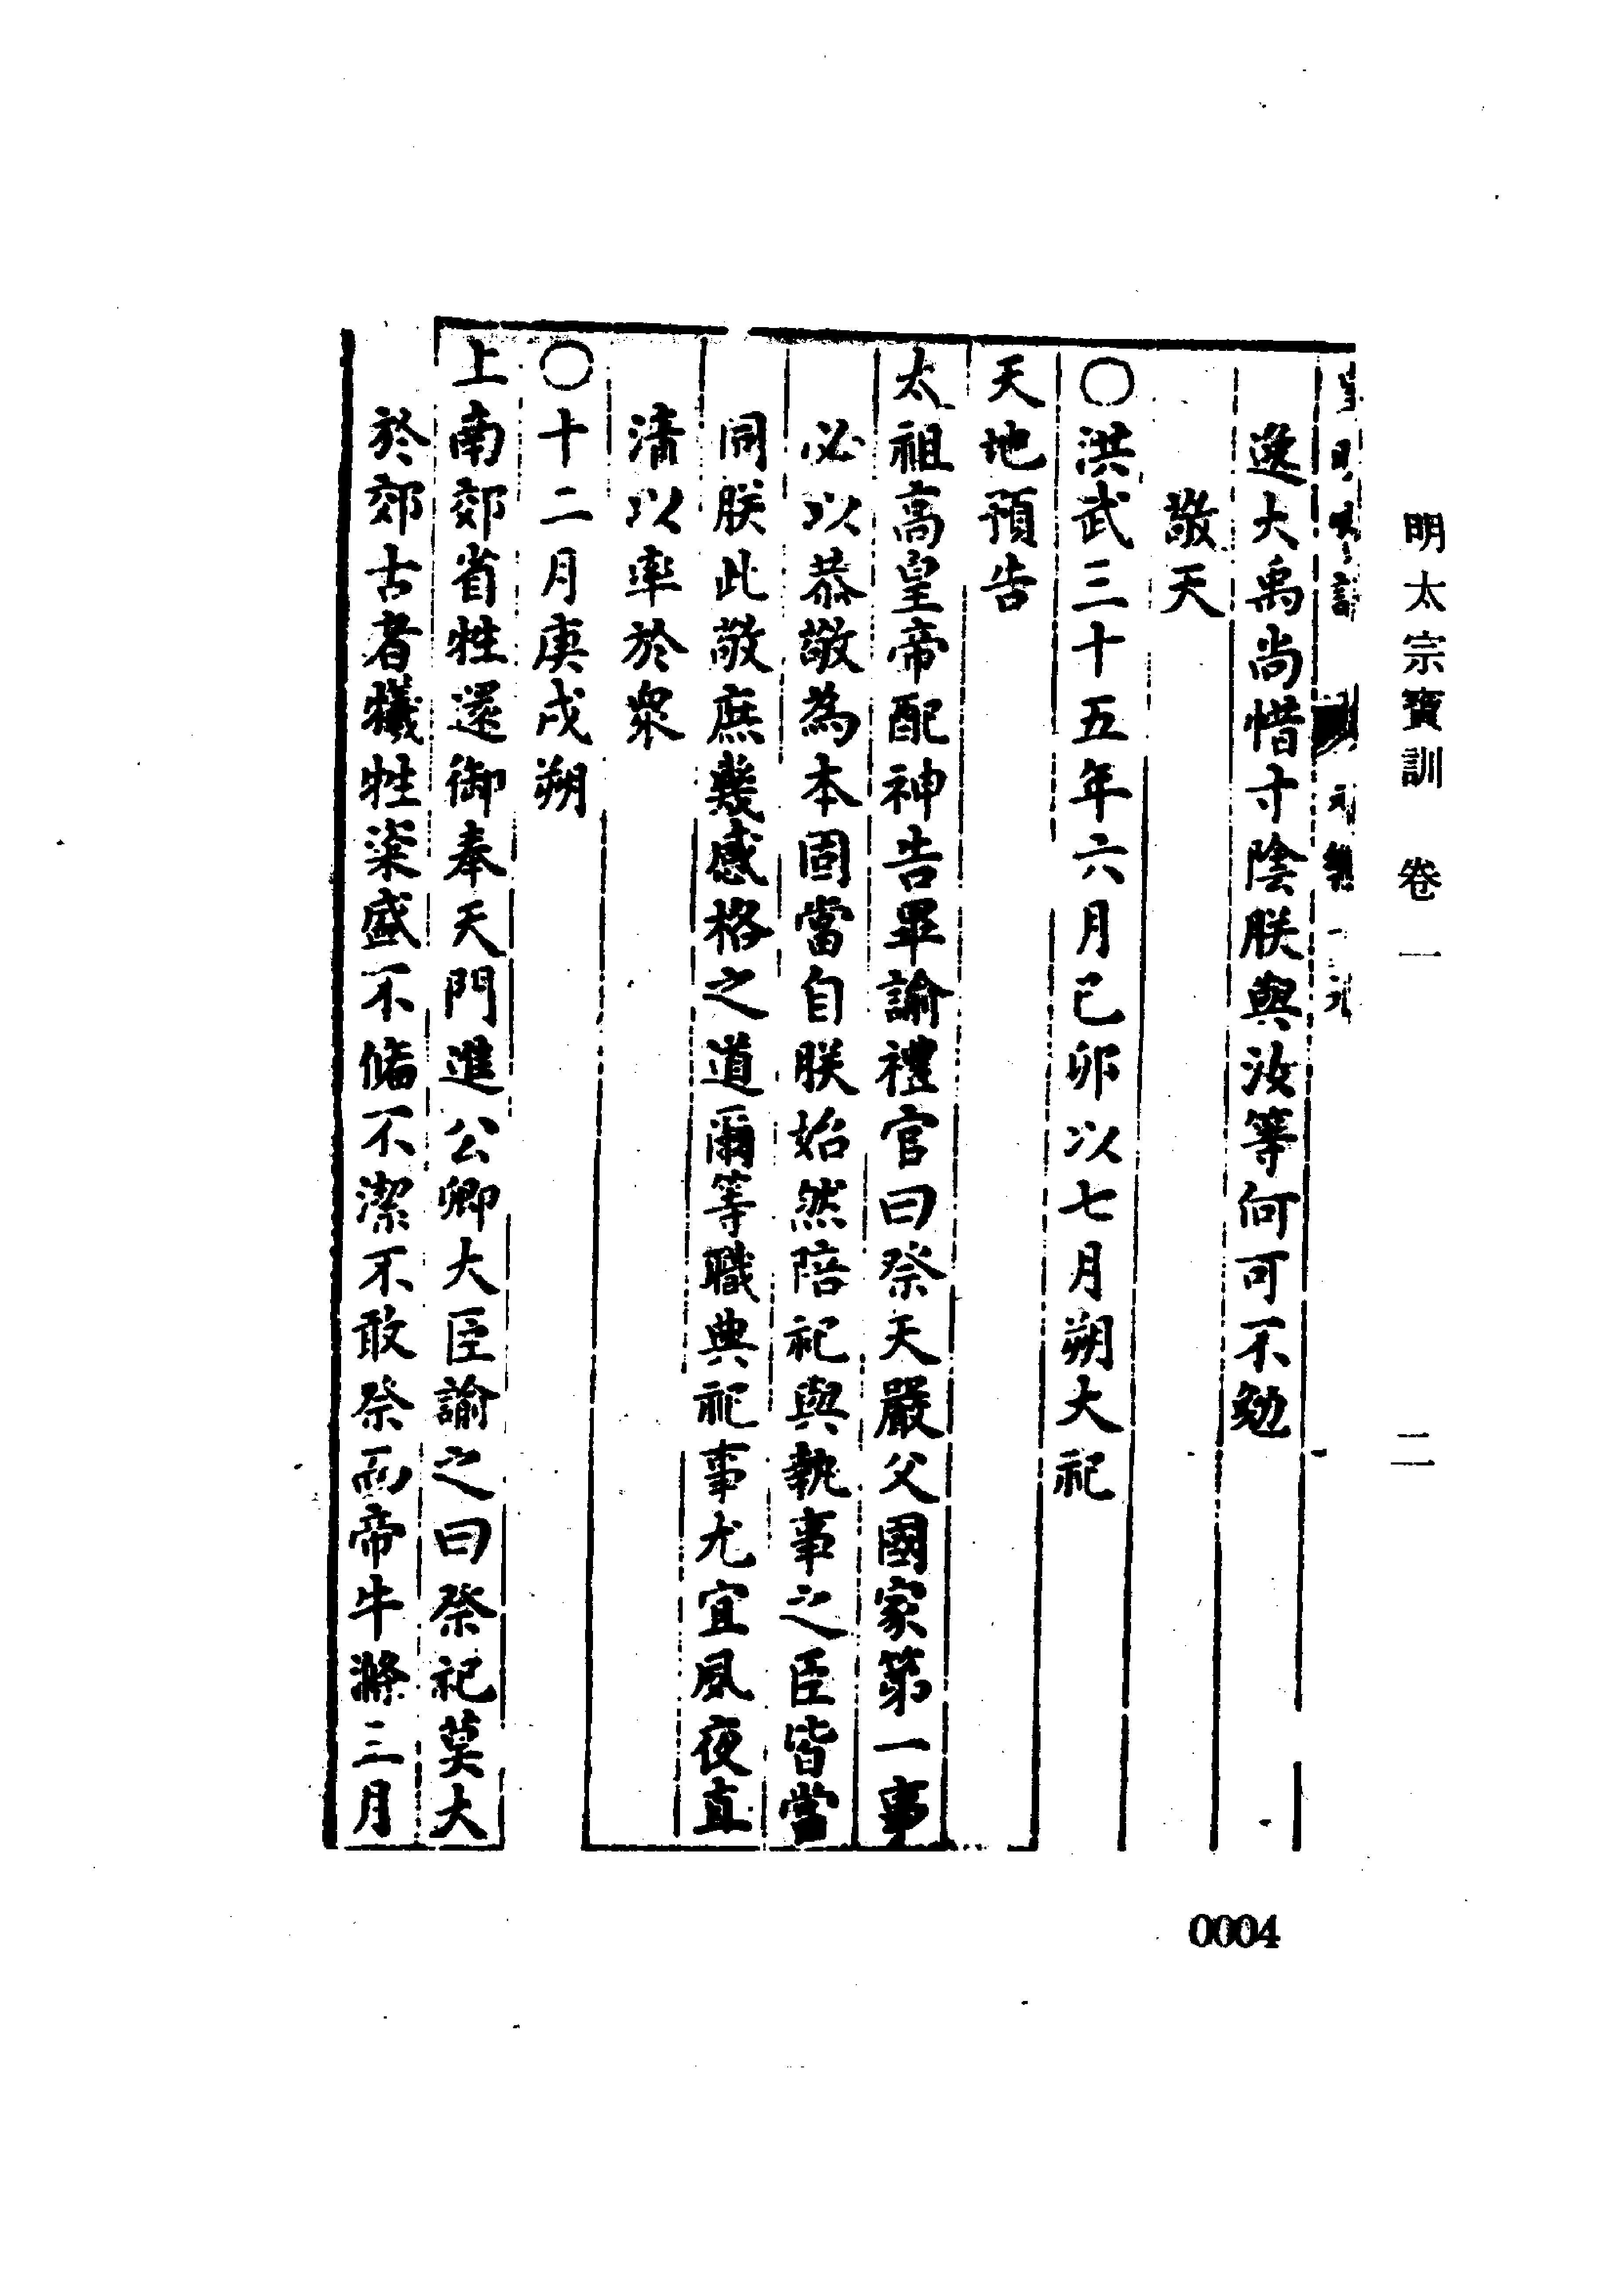 明太宗寶訓　卷一　二
逸大禹尚惜寸陰朕與汝等何可不勉
敬天
〇洪武三十五年六月己卯以七月朔大祀
天地預告
太祖高皇帝配神告畢諭禮官曰祭天嚴父國家第一事
必以恭敬為本固當自朕始然陪祀與執事之臣皆當
同朕此敬庶幾感格之道爾等職典祀事尤宜夙夜直
清以率於衆
〇十二月庚戌朔
上南郊省牲還御奉天門進公卿大臣諭之曰祭祀莫大
於郊古者犧牲粢盛不備不潔不敢祭而帝牛滌三月
0004